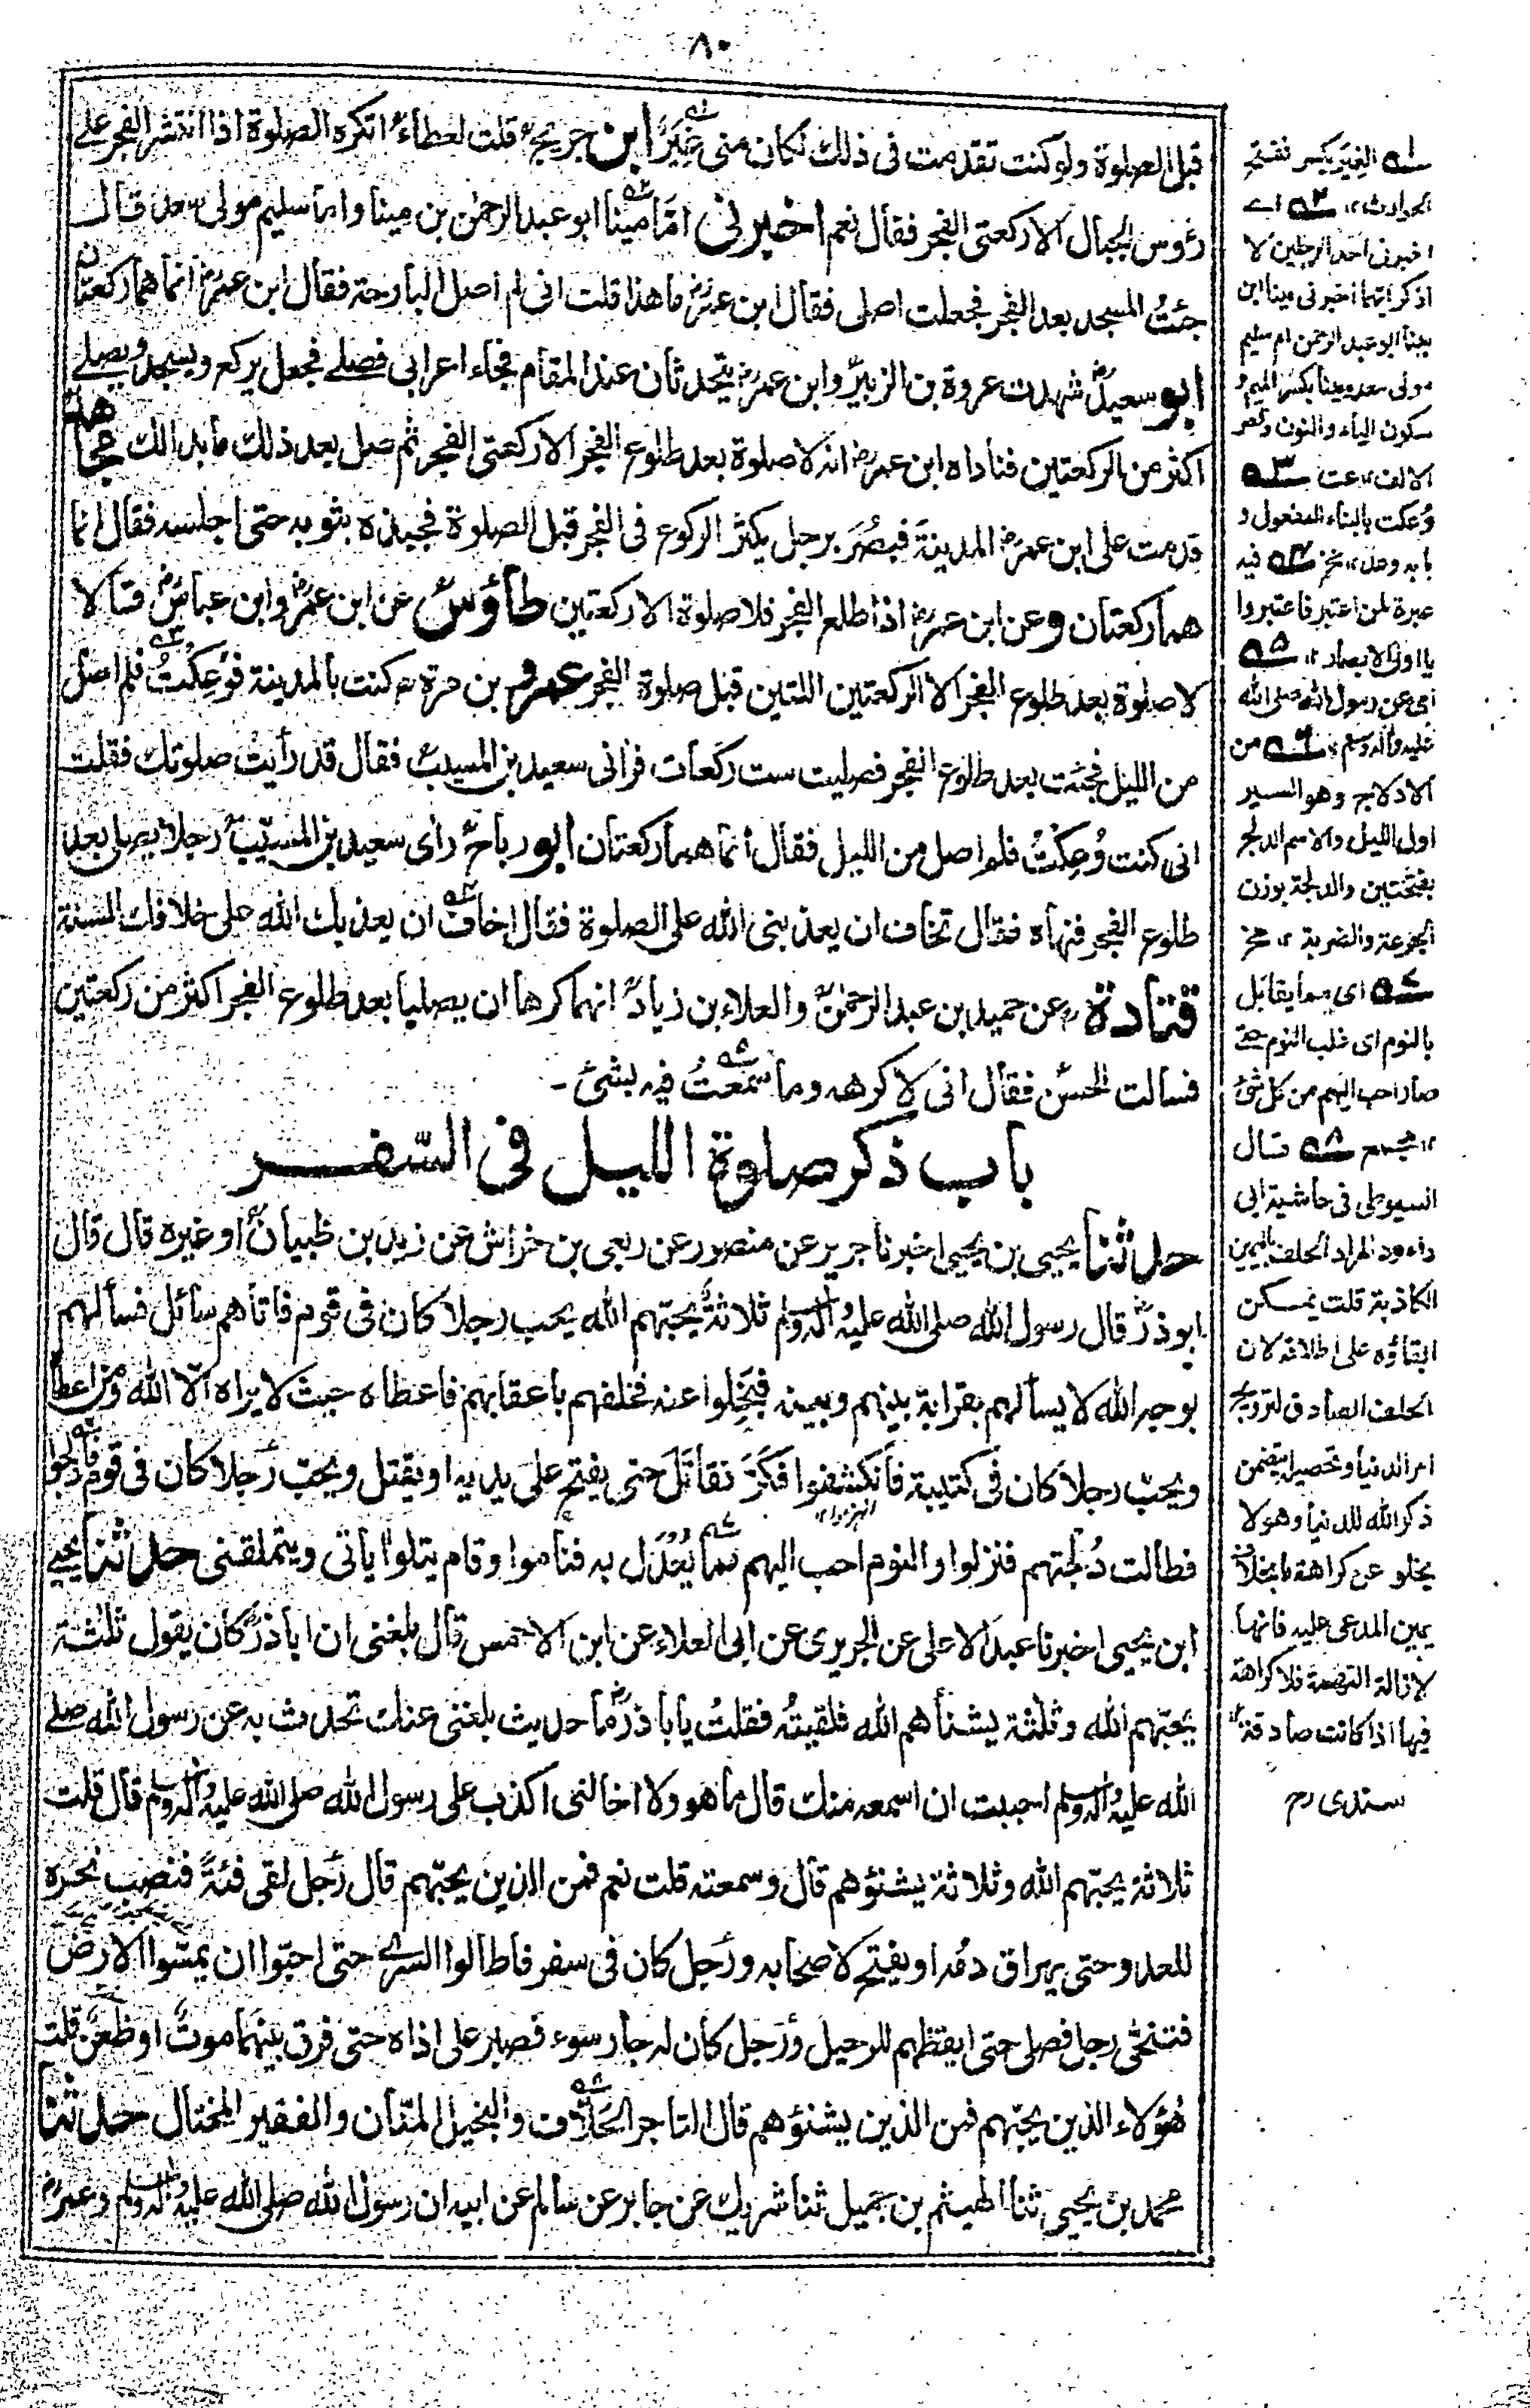 ٨٠
قبل الصلوة ولو كنت تقدمت فى ذلك لكان منى غِيَرٌ ابن جريج قلت لعطاء اتكره الصلوة اذا انتشر الفجر على
رؤس الجبال الا ركعتى الفجر فقال نعم اخبرنى امّا مينا ابو عبد الرحمٰن بن مينا واما سليم مولى سعد قال
جئتُ المسجد بعد الفجر فجعلت اصلى فقال ابن عمر ما هذا قلت انى لم اصل البارحة فقال ابن عمر انما هما ركعتان
ابو سعيد شهدت عروة بن الزبير وابن عمر يتحدثان عند المقام فجاء اعرابى فصلے فجعل يركع ويسجد ويصلے
اكثر من الركعتين فناداه ابن عمر انه لا صلوة بعد طلوع الفجر الا ركعتى الفجر ثم صل بعد ذلك ما بدالك مجاهد
قدمت على ابن عمر المدينة فبصُرَ برجل يكثر الركوع فى الفجر قبل الصلوة فجبذه بثوبه حتى اجلسه فقال انما
هما ركعتان وعن ابن عمر اذا طلع الفجر فلا صلوة الا ركعتين طاؤس عن ابن عمر وابن عباس قالا
لا صلوة بعد طلوع الفجر الا الركعتين اللتين قبل صلوة الفجر عمرو بن مرة كنت بالمدينة فوُعِكتُ فلم اصل
من الليل فجئت بعد طلوع الفجر فصليت ست ركعات فرانى سعيد بن المسيب فقال قد رأيت صلوتك فقلت
انى كنت وُعِكْتُ فلم اصل من الليل فقال انما هما ركعتان ابو رباح رأى سعيد بن المسيّب رجلا يصلى بعد
طلوع الفجر فنهاه فقال تخاف ان يعذبنى الله على الصلوة فقال اخاف ان يعذبك الله على خلافك السنة
قتادة عن حميد بن عبد الرحمٰن والعلاء بن زياد انهما كرها ان يصليا بعد طلوع الفجر اكثر من ركعتين
فسالت الحسن فقال انى لاكرهه وما سمعتُ فيه بشئ -
باب ذكر صلوة الليل فى السّفر
حدثنا يحيى بن يحيى اخبرنا جرير عن منصور عن ربعى بن خراش عن زيد بن ظبيان او غيره قال قال
ابو ذر قال رسول الله صلى الله عليه وآله وسلم ثلاثة يحبّهم الله يحب رجلا كان فى قوم فاتاهم سائل فسألهم
بوجه الله لا يسألهم بقرابة بينهم وبينه فبَخِلوا عنه فخلفهم باعقابهم فاعطاه حيث لا يراه الّا الله ومن اعطاه
ويحبّ رجلا كان فى كتيبة فانكشفوا فكَرّ فقاتَلَ حتى يفتح على يديه او يقتل ويحبّ رجلا كان فى قوم فادلجوا
انهزموا ١٢
فطالت دُلجَتهم فنزلوا والنوم احب اليهم مما يُعْدَل به فناموا وقام يتلو اٰياتى ويتملقنى حدثنا يحيے
ابن يحيى اخبرنا عبد الاعلى عن الجريرى عن ابى العلاء عن ابن الاحمس قال بلغنى ان اباذر كان يقول ثلٰثة
يحبّهم الله وثلٰثة يشنأهم الله فلقيته فقلتُ يا باذر ما حديث بلغنى عنك تحدث به عن رسول الله صلے
الله عليه وآله وسلم احببت ان اسمعه منك قال ما هو ولا اخالنى اكذب على رسول الله صلى الله عليه وآله وسلم قال قلت
ثلاثة يحبّهم الله وثلاثة يشنؤهم قال وسمعته قلت نعم فمن الذين يحبّهم قال رجل لقى فئةً فنصب نحره
للعدو حتى يهراق دمه او يفتح لاصحابه ورجل كان فى سفر فاطالوا السرے حتى احبّوا ان يمسّوا الارض
فتنحّى رجل فصلى حتى ايقظهم للرحيل ورَجل كان له جار سوء فصبر على اذاه حتى فرق بينهما موتٌ او ظعن قلت
هٰؤلاء الذين يحبّهم فمن الذين يشنؤهم قال التاجر الحَلّاف والبخيل المنّان والفقير المختال حدثنا
محمد بن يحيى ثنا الهيثم بن جميل ثنا شريك عن جابر عن سالم عن ابيه ان رسول الله صلى الله عليه وآله وسلم وعمر
سله الغِيَر بكسر ففتح
الحوادث ١٢ سله اے
اخبرنى احد الرجلين لا
اذكر ايهما اخبرنى مينا ابن
مينا ابو عبد الرحمن ام سليم
مولى سعد ومينا بكسر الميم و
سكون الياء والنون وقصر
الالف ١٢ عت سله
وُعكت بالبناء للمفعول و
بابه وعد ١٢ سله فيه
عبرة لمن اعتبر فاعتبروا
يا اولى الابصار ١٢ سله
اى عن رسول الله صلى الله
عليه وآله وسلم ١٢ سله من
الادلاج وهو السير
اول الليل والاسم الدلج
بفتحتين والدلجة بوزن
الجرعة والضربة ١٢
سله اى مما يقابل
بالنوم اى غلب النوم حتے
صار احب اليهم من كل شئ
١٢ سله قال
السيوطى فى حاشية ابى
داؤد المراد الحلف باليمين
الكاذبة قلت يمكن
ابقاؤه على اطلاقه لان
الحلف الصادق لترويج
امر الدنيا وتحصيله يتضمن
ذكر الله للدنيا وهو لا
يخلو عن كراهة ما بخلاف
يمين المدعى عليه فانها
لازالة التهمة فلا كراهة
فيها اذا كانت صادقة ١٢
سندى رح